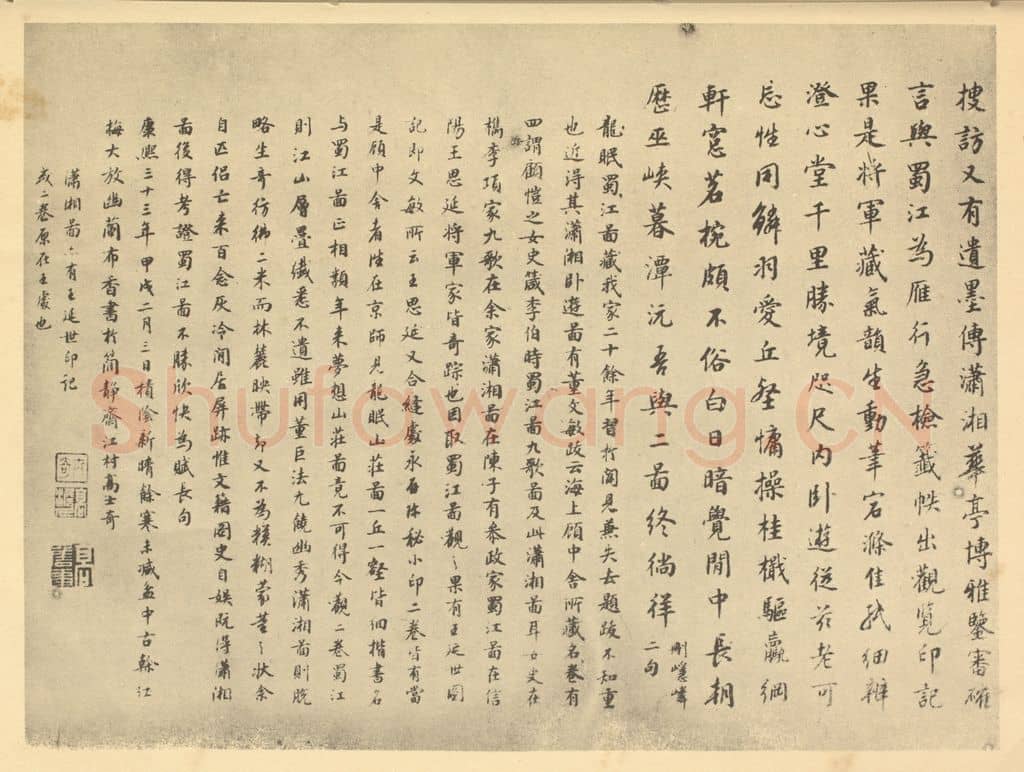 搜訪又有遺墨傳瀟湘華亭博雅鑒審確
言與蜀江為雁行急檢籤帙出觀覽印記
果是將軍藏氣韻生動筆宕滌佳紙細辨
澄心堂千里勝境咫尺內卧遊從茲老可
忘性同鱗羽愛丘壑慵操桂檝驅羸綱
軒窓茗椀頗不俗白日暗覺閒中長朝
歷巫峽暮潭沅吾與二圖終徜徉 刪嶾嶙二句
龍眠蜀江圖藏我家二十餘年習於聞見兼失去題跋不知重
也近得其瀟湘卧遊圖有董文敏跋云海上顧中舍所藏名卷有
四謂顧愷之女史箴李伯時蜀江圖九歌圖及此瀟湘圖耳女史在
檇李項家九歌在余家瀟湘圖在陳子有参政家蜀江圖在信
陽王思延將軍家皆奇踪也因取蜀江圖觀之果有王延世圖
記即文敏所云王思延又合縫處永存珠秘小印二卷皆有當
是顧中舍者往在京師見龍眠山莊圖一丘一壑皆細楷書名
与蜀江圖正相類年来夢想山莊圖竟不可得今觀二卷蜀江
則江山層疊纖悉不遺雖用董巨法尤饒幽秀瀟湘圖則脫
略生奇彷彿二米而林麓映帶却又不為糢糊蒙蓳之狀余
自匹侶亡来百念灰冷閒居屏跡惟文籍圖史自娛既得瀟湘
圖後得考證蜀江圖不勝欣快為賦長句
康熙三十三年甲戌二月三日積陰新晴餘寒未減盆中古榦江
梅大放幽蘭布香書於簡靜齋江村高士奇
瀟湘圖亦有王延世印記
或二卷原在王處也
Shufawang.CN